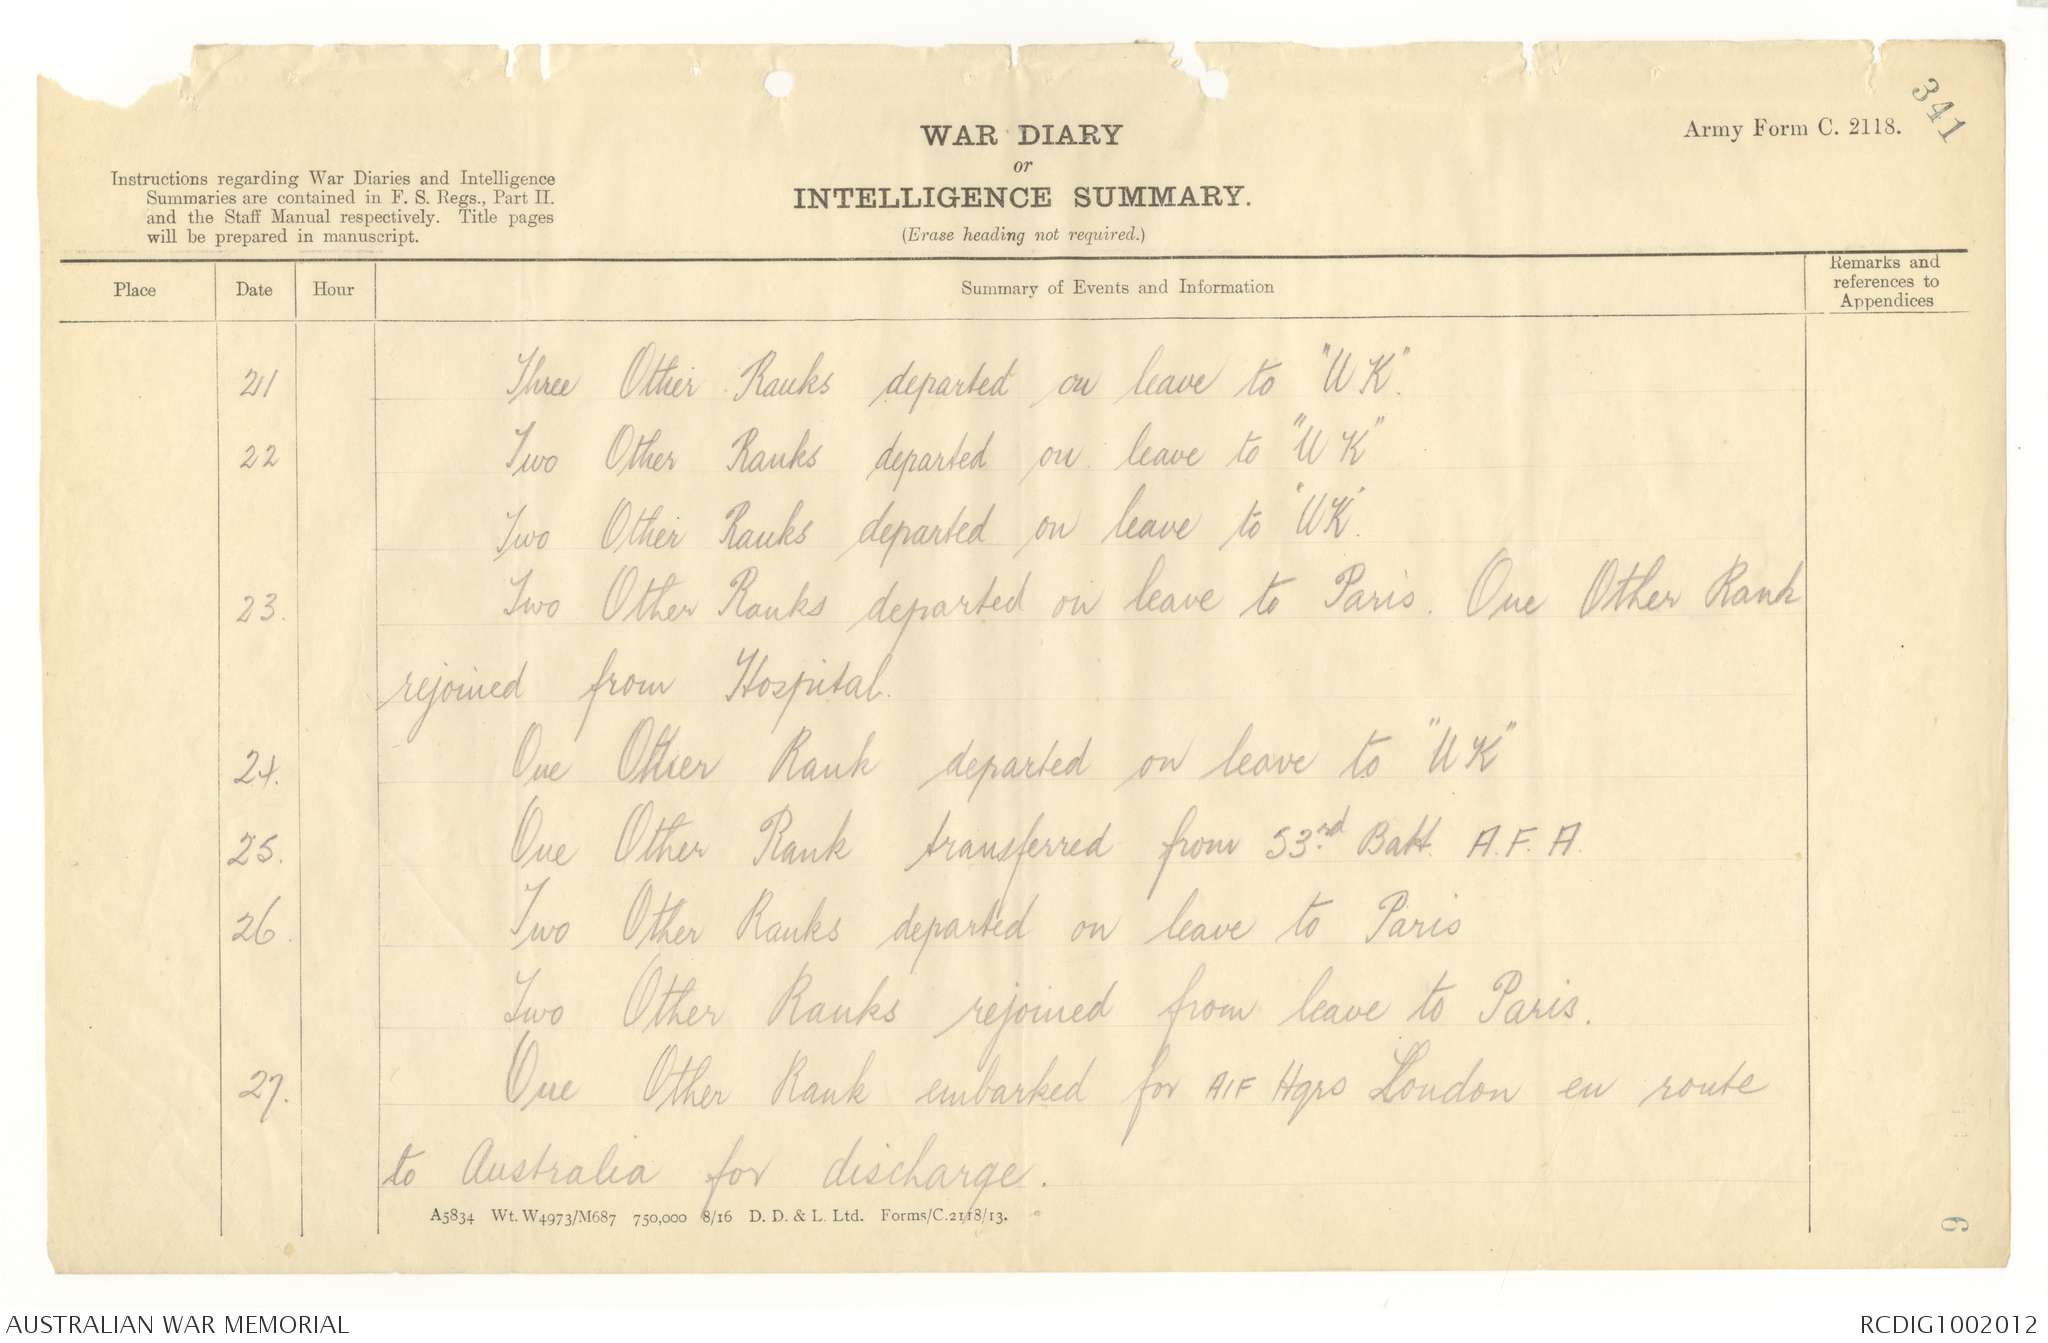 341
Army Form C. 2118.
WAR DIARY
or
INTELLIGENCE SUMMARY.
(Erase heading not required.)
Instructions regarding War Diaries and Intelligence
Summaries are contained in F. S. Regs., Part II.
and the Staff Manual respectively. Title pages
will be prepared in manuscript.
Place Date Hour Summary of Events and Information Remarks and references to Appendices
21 Three Other Ranks departed on leave to "UK".
22 Two Other Ranks departed on leave to "UK"
Two Other Ranks departed on leave to "UK".
23. Two Other Ranks departed on leave to Paris. One Other Rank
rejoined from Hospital.
24. One Other Rank departed on leave to "UK"
25. One Other Rank transferred from 53rd Batt. A.F.A.
26. Two Other Ranks departed on leave to Paris
Two Other Ranks rejoined from leave to Paris.
27. One Other Rank embarked for AIF Hqrs London en route
to Australia for discharge.
A5834 Wt. W4973/M687 750,000 8/16 D. D. & L. Ltd. Forms/C.2118/13.
6
AUSTRALIAN WAR MEMORIAL
RCDIG1002012